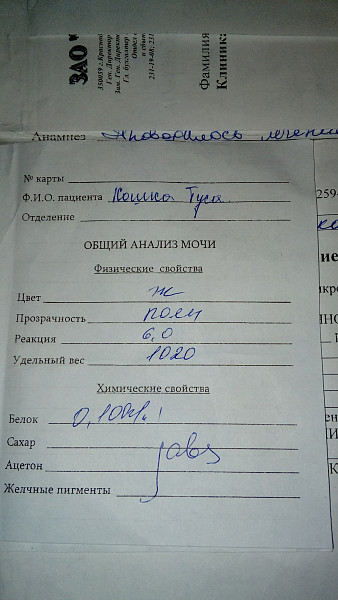 ЗАО
350059 г.Красно
Ген. Директор
Зам. Ген. Директо
Гл. бухгалтер
Отдел с
и сбыт
231-19-08; 231
Фамилия
Клиника:
Анамнез проводилось лечени
№ карты
Ф.И.О. пациента Кошка Туся
Отделение
259-
ОБЩИЙ АНАЛИЗ МОЧИ
Физические свойства
Цвет ж
Прозрачность полн
Реакция 6,0
Удельный вес 1020
Химические свойства
Белок 0,100
Сахар abs
Ацетон
Желчные пигменты